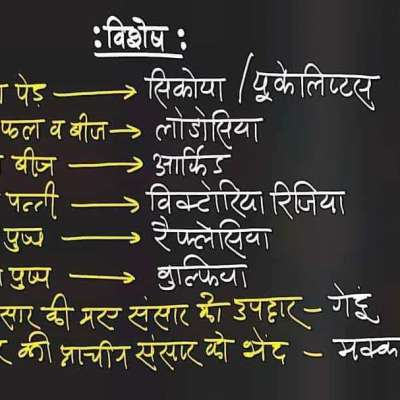 : विशेष :
पेड़ → सिकोया / यूकेलिप्टस
फल व बीज → लोडोसिया
बीज → आर्किड
पत्ती → विक्टोरिया रिजिया
पुष्प → रैफ्लेसिया
पुष्प → वुल्फिया
सार की संसार को उपहार – गेहूं
की प्राचीन संसार को भेंद – मक्क